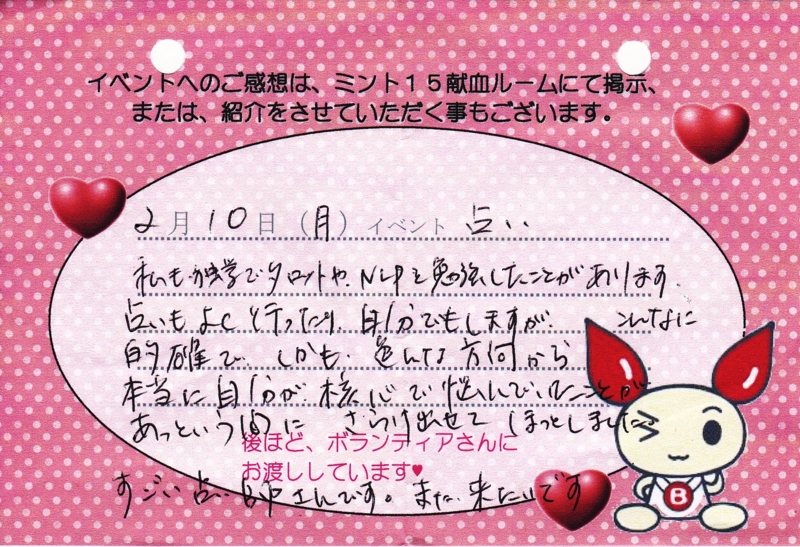 イベントへのご感想は、ミント15献血ルームにて掲示、
または、紹介をさせていただく事もございます。
2月10日（月）イベント 占い
私も独学でタロットや、NLPを勉強したことがあります。
占いもよく行ったり、自分でもしますが、こんなに
的確で、しかも、色んな方向から
本当に自分が核心で悩んでいたことが
あっという間に さらけ出せて ほっとしました。
後ほど、ボランティアさんに
お渡ししています♥
すごい占い師さんです。また来たいです
B